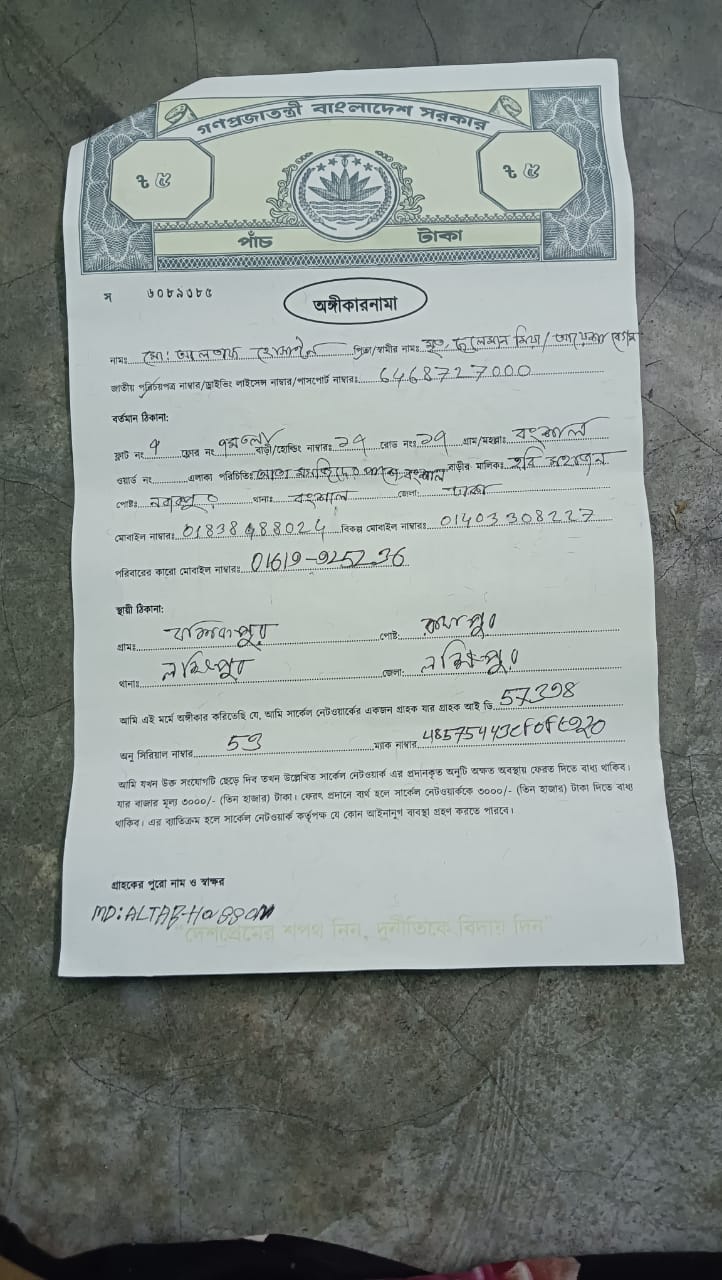 গণপ্রজাতন্ত্রী বাংলাদেশ সরকার
৳ ৫ ৳ ৫
পাঁচ টাকা
স ৬০৮৯০৮৫
অঙ্গীকারনামা
নামঃ মো: আলতাফ হোসাইন পিতা/স্বামীর নামঃ মৃত, ছুলেমান মিয়া/ বেগম
জাতীয় পরিচয়পত্র নাম্বার/ড্রাইভিং লাইসেন্স নাম্বার/পাসপোর্ট নাম্বারঃ 6468727000
বর্তমান ঠিকানা:
ফ্লাট নং ফ্লোর নং বাড়ী/হোল্ডিং নাম্বারঃ ১৭ রোড নংঃ ১৭ গ্রাম/মহল্লাঃ বংশাল
ওয়ার্ড নং এলাকা পরিচিতিঃ বংশাল বাড়ীর মালিকঃ হবি মহাজন
পোষ্টঃ নবাবপুর থানাঃ বংশাল জেলা: ঢাকা
মোবাইল নাম্বারঃ 01838488024 বিকল্প মোবাইল নাম্বারঃ 01403308227
পরিবারের কারো মোবাইল নাম্বারঃ 01619-925236
স্থায়ী ঠিকানা:
গ্রামঃ পোষ্ট:
থানাঃ লক্ষিপুর জেলা: লক্ষিপুর
আমি এই মর্মে অঙ্গীকার করিতেছি যে, আমি সার্কেল নেটওয়ার্কের একজন গ্রাহক যার গ্রাহক আই ডি 57398
অনু সিরিয়াল নাম্বার 53 ম্যাক নাম্বার
আমি যখন উক্ত সংযোগটি ছেড়ে দিব তখন উল্লেখিত সার্কেল নেটওয়ার্ক এর প্রদানকৃত অনুটি অক্ষত অবস্থায় ফেরত দিতে বাধ্য থাকিব।
যার বাজার মূল্য ৩০০০/- (তিন হাজার) টাকা। ফেরৎ প্রদানে ব্যর্থ হলে সার্কেল নেটওয়ার্ককে ৩০০০/- (তিন হাজার) টাকা দিতে বাধ্য
থাকিব। এর ব্যতিক্রম হলে সার্কেল নেটওয়ার্ক কর্তৃপক্ষ যে কোন আইনানুগ ব্যবস্থা গ্রহণ করতে পারবে।
গ্রাহকের পুরো নাম ও স্বাক্ষর
MD:ALTAF-Hossan
"দেশপ্রেমের শপথ নিন, দুর্নীতিকে বিদায় দিন"